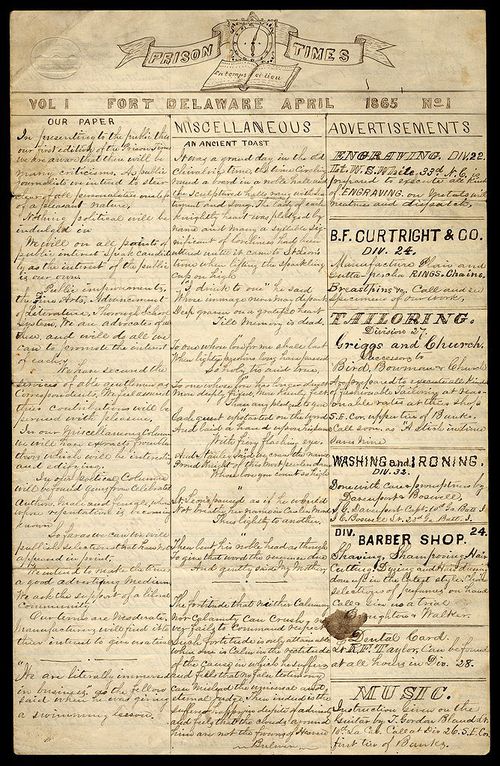 PRISON TIMES
VOL I FORT DELAWARE APRIL 1865 No. 1
OUR PAPER
In presenting to the public this
our first edition of the Prison Times
we are aware that there will be
many criticisms. As public
journalists we intend to steer
clear of all
of a pleasant nature.
Nothing political will be
indulged in
We will on all points of
public interest speak candid
ly as the interest of the public
is our own.
Public improvements,
the Fine Arts, Advancement
of Literature, Thorough School
System, We are advocates of
these, and will do all we
can to promote the interest
of each.
We have secured the
services of able gentlemen as
Correspondents. We feel assured
their contributions will be
read with pleasure.
In our Miscellaneous Column
we will have extracts from
which will be interesting
and edifying.
In our Poetical Column
will be found Gems from Celebrated
Authors,
when reputation is
known
So far as we can we will
publish selections that have not
appeared in print.
We intend to make the Times
a good advertising Medium.
We ask the support of a liberal
Community
Our terms are Moderate,
Manufacturers will find it to
their interest to give us a trial
"We are literally immersed
in business," as the fellow
said when he was giving
a swimming lesson.
MISCELLANEOUS
AN ANCIENT TOAST
It was a grand day in the old
chivalric time, the wine circling
round a board in a noble hall and
the sculptured walls rang with sen
timent and song. The lady of each
knightly heart was pledged by
name and many a syllable sig
nificant of loveliness had been
uttered until it came to St Leon's
turn when lifting the sparkling
cup on high
"I drink to one" he said
Whose image never may depart
Deep graven on a grateful heart
Till Memory is dead.
To one whose love for me shall last
When lighter passions long have passed
So holy tis and true,
To one whose love has longer dwelt
More deeply fixed, more keenly felt
Than any pledged by you
Each guest upstarted at the word
And laid a hand upon his sword
With fiery flashing eye
And Stanley said, we crave the name
Proud Knight of this most peerless dame
Whose love you count so high
St Leon paused as if he would
Not breathe her name in careless Mood
Thus lightly to another,
Then bent his noble head as though
To give that word the reverence due
And gently said My Mother
The fortitude that neither Calumny
nor Calamity can Crush,
Such fortitude is only attainable
when one is Calm in the rectitude
of the Cause in which he suffers
and feels that no false testimony
can mislead the universal and
eternal Judge. Then indeed is the
sufferer happy in despite of adversity
and feels that the clouds around
him are not the frowns of Heaven
Bulwer
ADVERTISEMENTS
ENGRAVING. DIV. 22.
Lt. W. E. White. 33d N. C. is
prepared to execute all kinds
of ENGRAVING. on Gutta with
neatness and dispatch,
B. F. CURTRIGHT & CO.
DIV. 24.
Manufacture Plain and
Gutta-percha RINGS. Chains,
Breastpins &c, Call and see
specimens of our work.
TAILORING.
Division 27.
Griggs and Church.
Successors to
Bird, Bowman & Church
Are prepared to execute all kinds
of fashionable Tailoring at reason
able rates at the shop
S. E. Cor. upper tier of Bunks.
Call soon, as "A stich in time
saves Nine
WASHING and IRONING.
DIV. 32.
Done with care & promptness by
Davenport & Boswell,
DIV. BARBER SHOP. 24.
Shaving, Shampooing, Hair
Cutting, Dyeing and Hair dressing
done up in the latest styles. Choice
selections of perfumes on hand
Call & give us a trial
Walker.
Dental Card.
Taylor, Can be found
at all hours in Div. 28.
MUSIC.
Instruction Given on the
Guitar by T. Gordon Bland
10th La. Call at Div 26. S. E. Cor
first tier of Bunks.